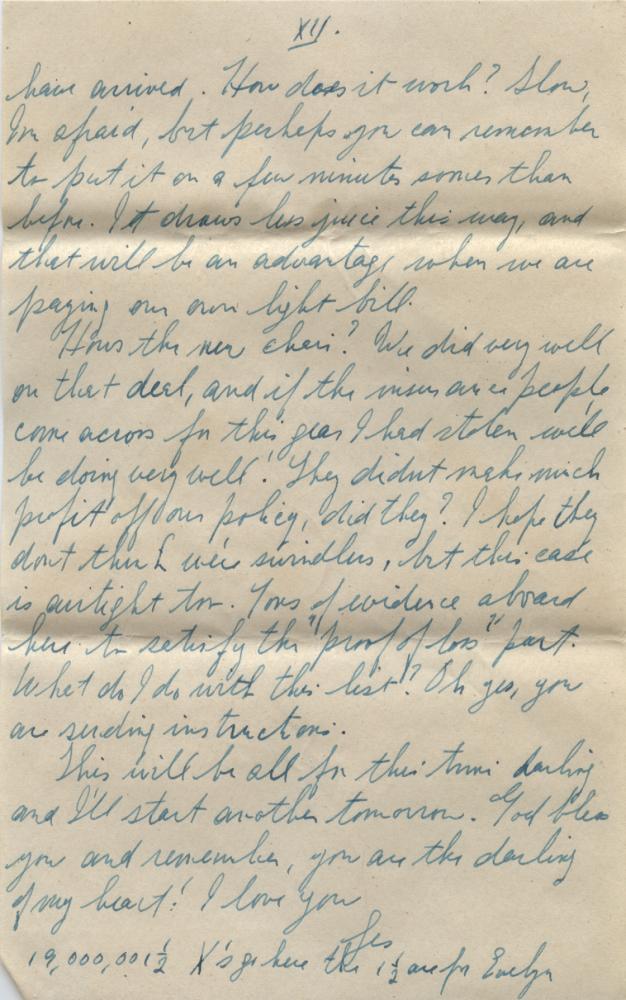 XII.
have arrived. How does it work? Slow,
I'm afraid, but perhaps you can remember
to put it on a few minutes sooner than
before. It draws less juice this way, and
that will be an advantage when we are
paying our own light bill.
Hows the new chair? We did very well
on that deal, and if the insurance people
come across for this gear I had stolen we'll
be doing very well! They didn't make much
profit off our policy, did they? I hope they
dont think we're swindlers, but this case
is airtight too. Tons of evidence aboard
here to satisfy the "proof of loss" part.
What do I do with this list? Oh yes, you
are sending instructions.
This will be all for this time darling
and I'll start another tomorrow. God bless
you and remember, you are the darling
of my heart! I love you
Les
19,000,001½ X's go here the 1½ are for Evelyn